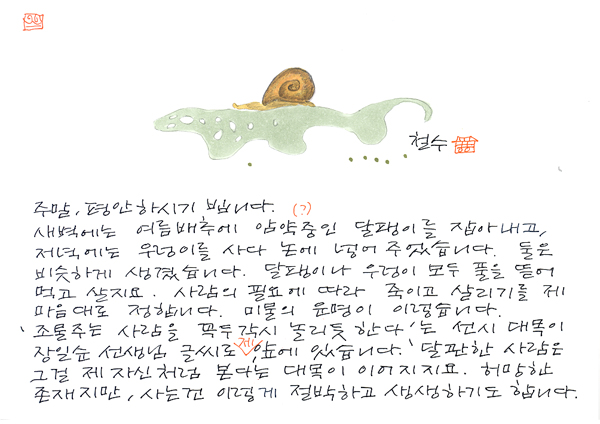 철수
주말, 평안하시기 빕니다. (?)
새벽에는 여름배추에 암약중인 달팽이를 잡아내고,
저녁에는 우렁이를 사다 논에 넣어 주었습니다. 둘은
비슷하게 생겼습니다. 달팽이나 우렁이 모두 풀을 뜯어
먹고 살지요. 사람의 필요에 따라 죽이고 살리기를 제
마음대로 정합니다. 미물의 운명이 이렇습니다.
'조물주는 사람을 꼭두각시 놀리듯 한다'는 선시 대목이
장일순 선생님 글씨로 제 앞에 있습니다. '달관한 사람은
그걸 제 자신처럼 본다는 대목이 이어지지요. 허망한
존재지만, 사는건 이렇게 절박하고 생생하기도 합니다.